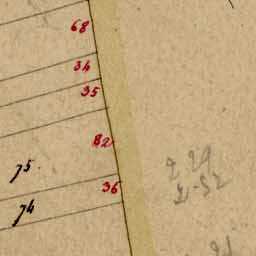 68
34
35
82
75.
36
74
2 29
2-52